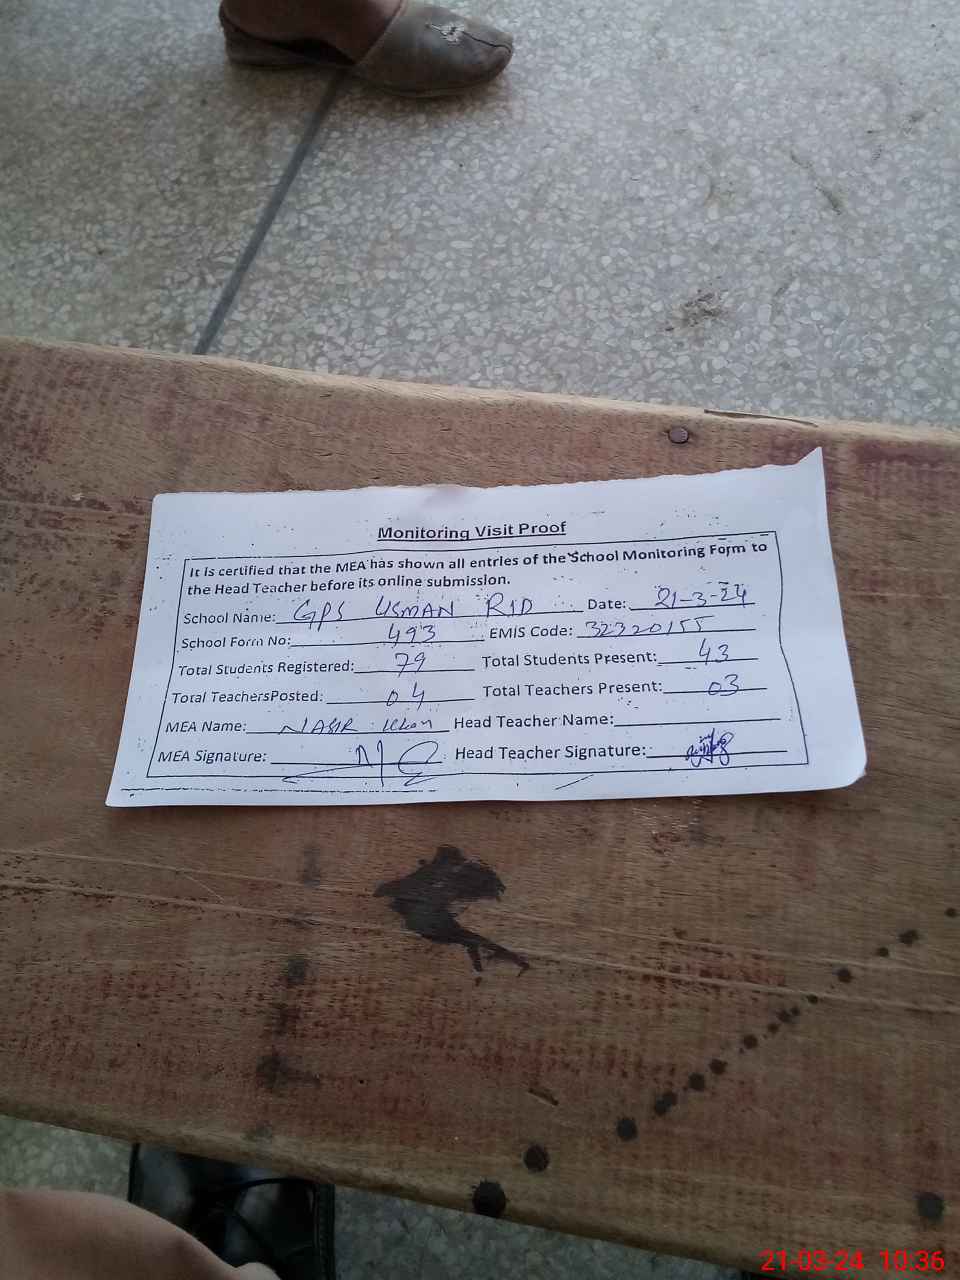 Monitoring Visit Proof
It is certified that the MEA has shown all entries of the School Monitoring Form to
the Head Teacher before its online submission.
School Name: GPS USMAN RID Date: 21-3-24
School Form No: 493 EMIS Code: 32320155
Total Students Registered: 79 Total Students Present: 43
Total TeachersPosted: 04 Total Teachers Present: 03
MEA Name: NASIR Khan Head Teacher Name:
MEA Signature: Head Teacher Signature:
21-03-24 10:36